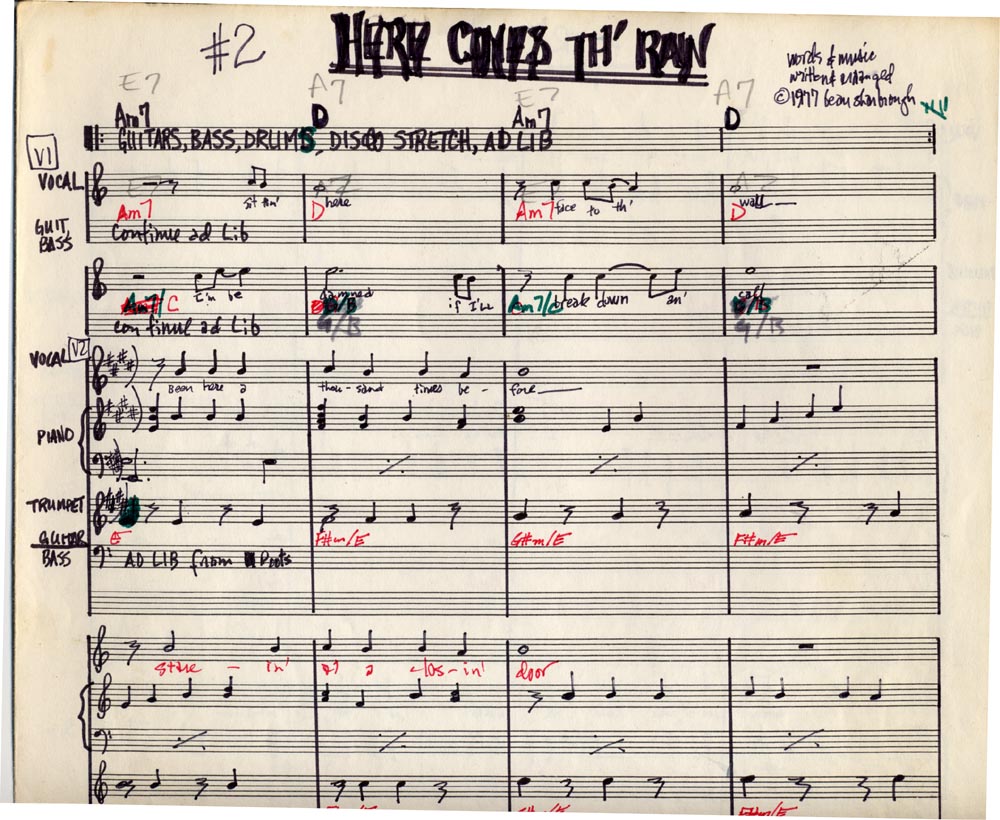 #2 HERE COMES TH' RAIN
words & music
written & arranged
©1977 beau sharbrough
E7 A7 E7 A7
Am7 D Am7 D
GUITARS, BASS, DRUMS, DISCO STRETCH, AD LIB
V1
VOCAL
E7 A7 E7 A7
sit tin' here face to th' wall
Am7 D Am7 D
GUIT, BASS
Continue ad Lib
I'm be damned if I'll break down an' call
Am7/C D/B Am7/C D/B
G/B G/B
continue ad Lib
VOCAL V2
Been here a thou - sand times be - fore
PIANO
TRUMPET
GUITAR
E F#m/E G#m/E F#m/E
BASS
AD LIB from Roots
stare - in' at a clos - in' door